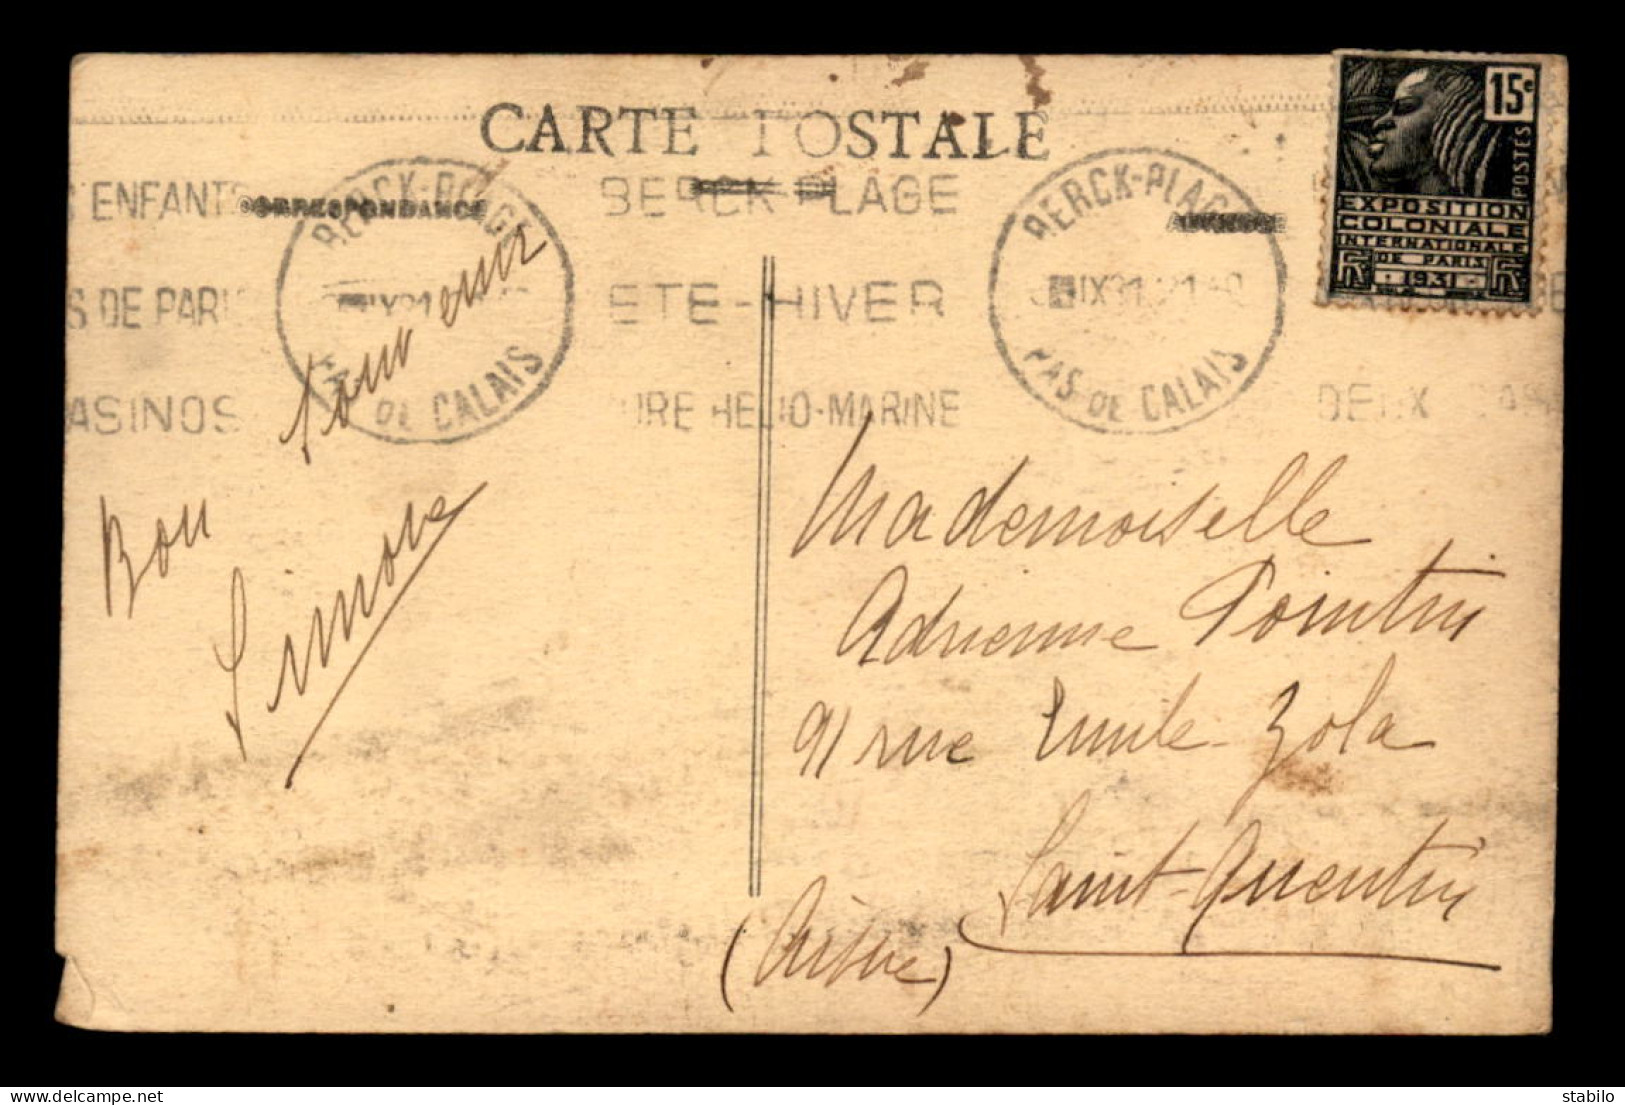 CARTE POSTALE
CORRESPONDANCE
ENFANTS
S DE PARIS
ASINOS
BERCK-PLAGE
PAS DE CALAIS
BERCK-PLAGE
ETE-HIVER
URE HELIO-MARINE
BERCK-PLAGE
IX31
PAS-DE CALAIS
DEUX CAS
15c
POSTES
EXPOSITION
COLONIALE
INTERNATIONALE
DE PARIS
1931
Bon souvenir
Simone
Mademoiselle
Adrienne Pointin
91 rue Emile-Zola
Saint-Quentin
(Aisne)
delcampe.net
stabilo